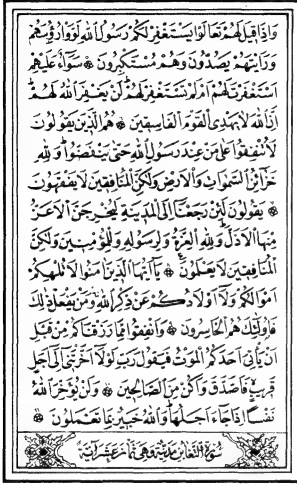 وَاِذَا قِيلَ لَهُمْ تَعَالَوْا يَسْتَغْفِرْ لَكُمْ رَسُولُ اللّٰهِ لَوَّوْا رُؤُسَهُمْ
وَرَاَيْتَهُمْ يَصُدُّونَ وَهُمْ مُسْتَكْبِرُونَ ۞ سَوَٓاءٌ عَلَيْهِمْ
اَسْتَغْفَرْتَ لَهُمْ اَمْ لَمْ تَسْتَغْفِرْ لَهُمْ لَنْ يَغْفِرَ اللّٰهُ لَهُمْ
اِنَّ اللّٰهَ لَا يَهْدِى الْقَوْمَ الْفَاسِقِينَ ۞ هُمُ الَّذِينَ يَقُولُونَ
لَا تُنْفِقُوا عَلٰى مَنْ عِنْدَ رَسُولِ اللّٰهِ حَتّٰى يَنْفَضُّوا وَلِلّٰهِ
خَزَٓائِنُ السَّمٰوَاتِ وَالْاَرْضِ وَلٰكِنَّ الْمُنَافِقِينَ لَا يَفْقَهُونَ
۞ يَقُولُونَ لَئِنْ رَجَعْنَٓا اِلَى الْمَدِينَةِ لَيُخْرِجَنَّ الْاَعَزُّ
مِنْهَا الْاَذَلَّ وَلِلّٰهِ الْعِزَّةُ وَلِرَسُولِهِ وَلِلْمُؤْمِنِينَ وَلٰكِنَّ
الْمُنَافِقِينَ لَا يَعْلَمُونَ ۞ يَٓا اَيُّهَا الَّذِينَ اٰمَنُوا لَا تُلْهِكُمْ
اَمْوَالُكُمْ وَلَٓا اَوْلَادُكُمْ عَنْ ذِكْرِ اللّٰهِ وَمَنْ يَفْعَلْ ذٰلِكَ
فَاُولٰٓئِكَ هُمُ الْخَاسِرُونَ ۞ وَاَنْفِقُوا مِمَّا رَزَقْنَاكُمْ مِنْ قَبْلِ
اَنْ يَاْتِىَ اَحَدَكُمُ الْمَوْتُ فَيَقُولَ رَبِّ لَوْلَٓا اَخَّرْتَنِٓى اِلٰٓى اَجَلٍ
قَرِيبٍ فَاَصَّدَّقَ وَاَكُنْ مِنَ الصَّالِحِينَ ۞ وَلَنْ يُؤَخِّرَ اللّٰهُ
نَفْسًا اِذَا جَٓاءَ اَجَلُهَا وَاللّٰهُ خَبِيرٌ بِمَا تَعْمَلُونَ ۞
سُورَةُ التَّغَابُنِ مَدَنِيَّةٌ وَهِىَ ثَمَانَ عَشَرَ اٰيَةً